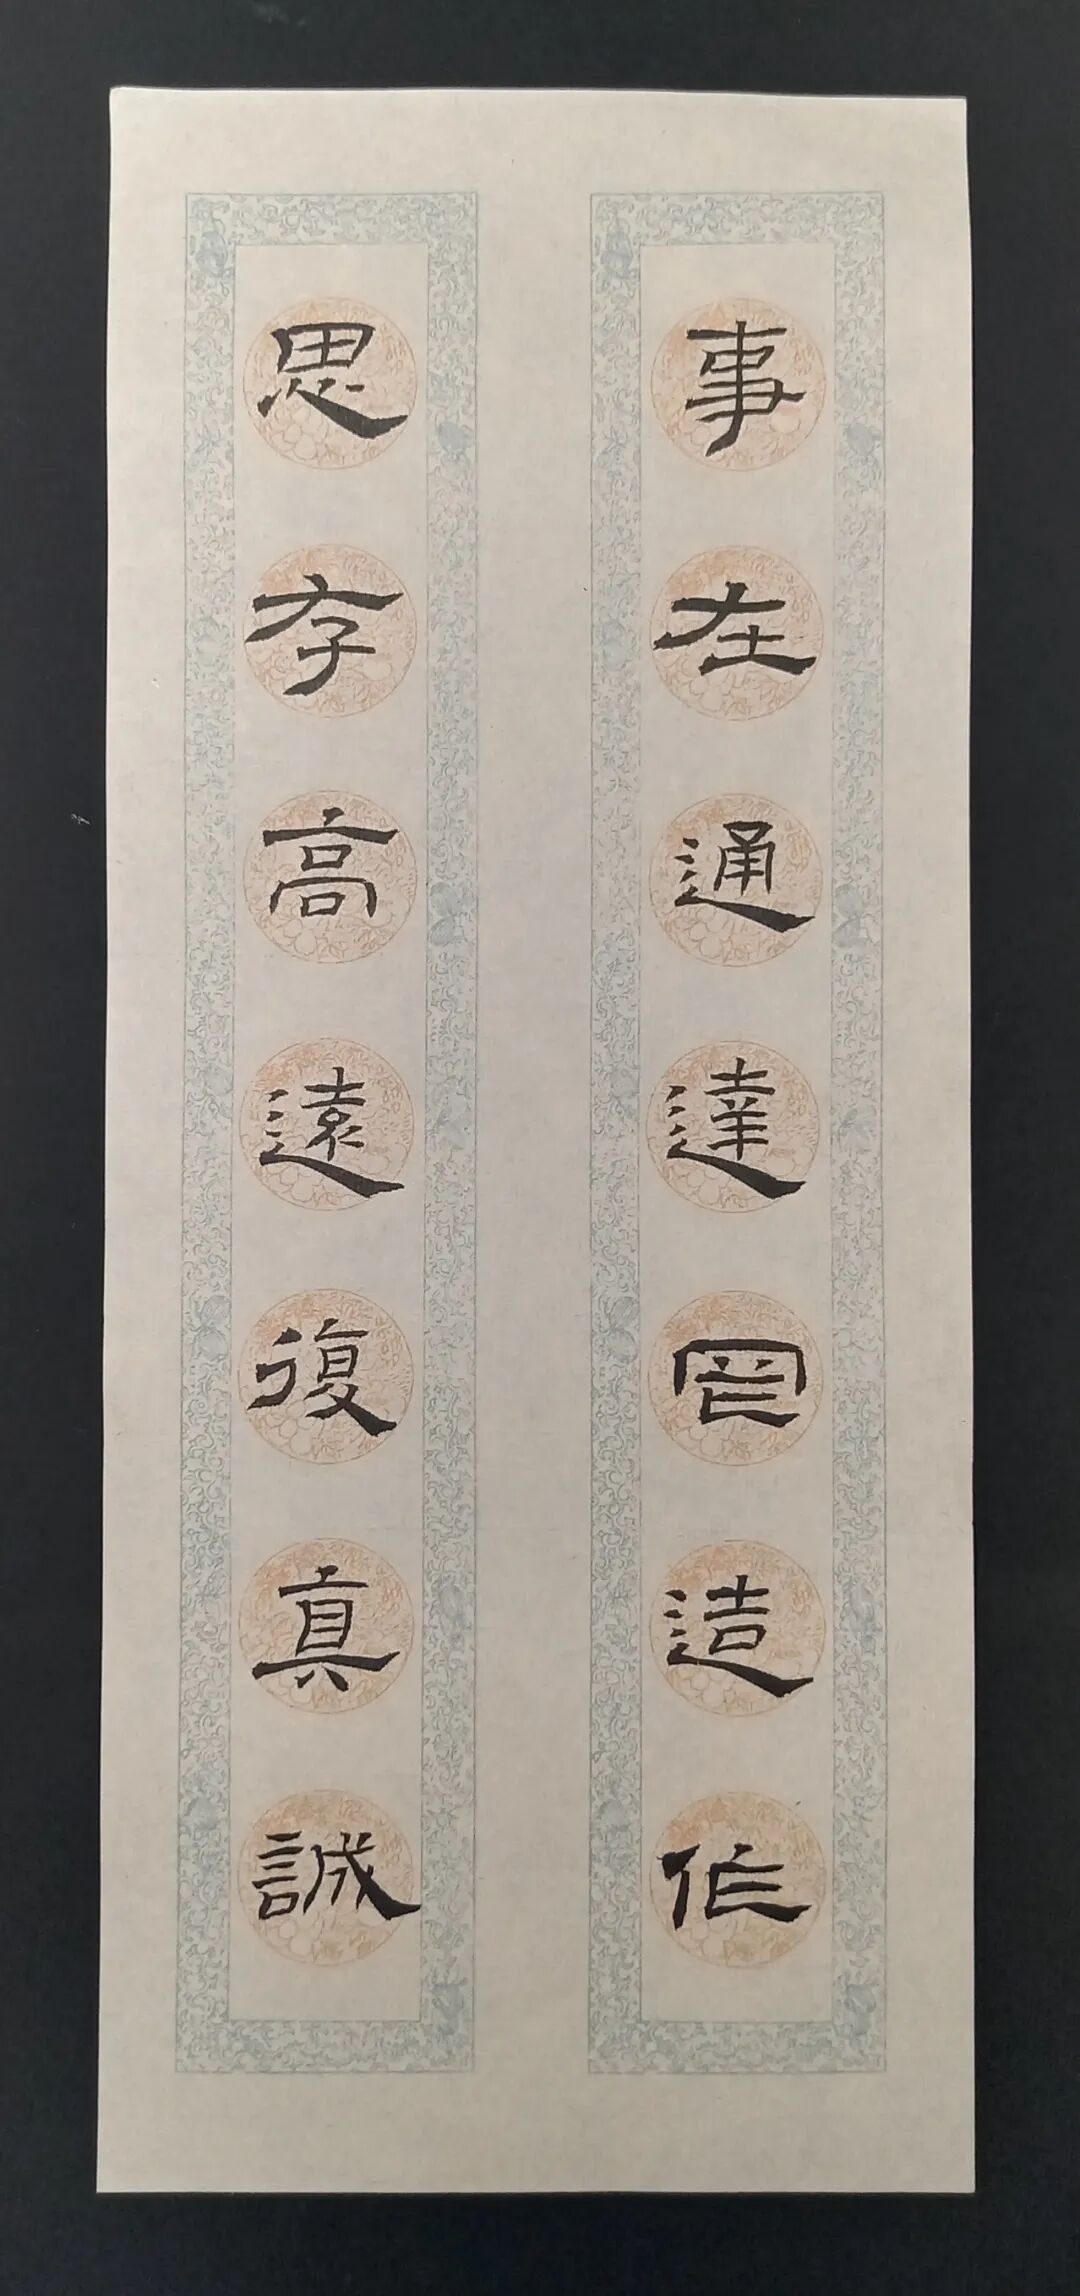 事在通達罔造作
思存高遠復真誠